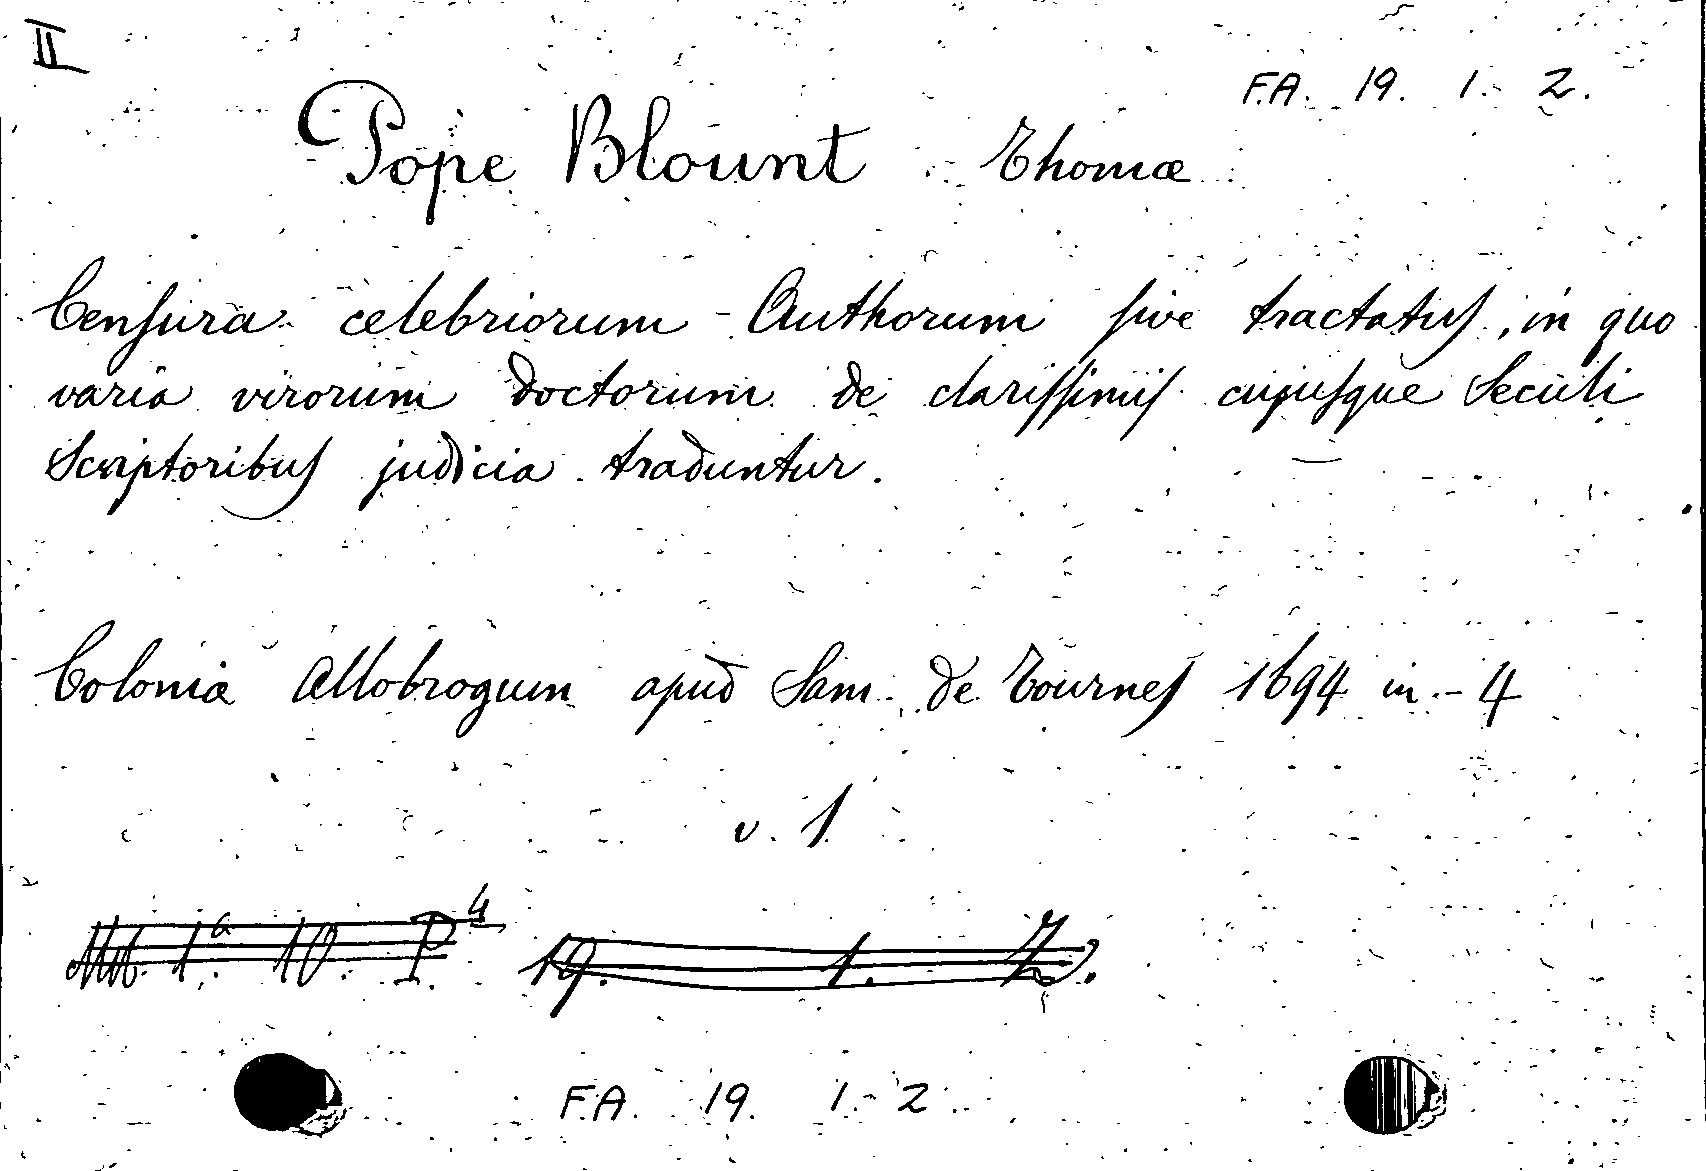 II
F.A. 19. 1. 2.
Pope Blount Thomæ
Cenſura celebriorum Authorum ſive tractatuſ, in quo
varia virorum doctorum de clariſſimiſ cujuſque Seculi
Scriptoribuſ judicia traduntur.
Coloniæ Allobrogum apud Sam. de Tourneſ 1694 in-4
v. 1
1.a 10. P. 4 19. 1. 2.
F.A. 19. 1. 2.